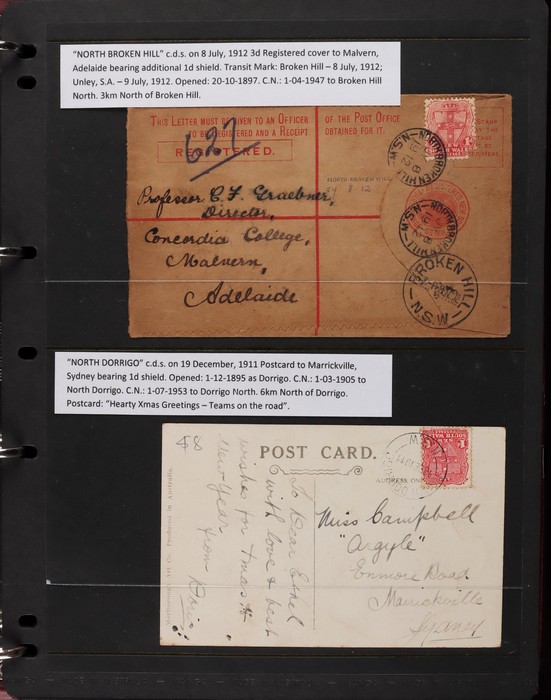 "NORTH BROKEN HILL" c.d.s. on 8 July, 1912 3d Registered cover to Malvern,
Adelaide bearing additional 1d shield. Transit Mark: Broken Hill – 8 July, 1912;
Unley, S.A. – 9 July, 1912. Opened: 20-10-1897. C.N.: 1-04-1947 to Broken Hill
North. 3km North of Broken Hill.
THIS LETTER MUST BE GIVEN TO AN OFFICER
TO BE REGISTERED AND A RECEIPT
OF THE POST OFFICE
OBTAINED FOR IT.
REGISTERED.
627
STAMP
NORTH BROKEN HILL
8 12
NORTH BROKEN HILL N.S.W
NORTH BROKEN HILL N.S.W
BROKEN HILL
N.S.W
Professor C. F. Graebner,
Director,
Concordia College,
Malvern,
Adelaide
"NORTH DORRIGO" c.d.s. on 19 December, 1911 Postcard to Marrickville,
Sydney bearing 1d shield. Opened: 1-12-1895 as Dorrigo. C.N.: 1-03-1905 to
North Dorrigo. C.N.: 1-07-1953 to Dorrigo North. 6km North of Dorrigo.
Postcard: "Hearty Xmas Greetings – Teams on the road".
POST CARD.
ADDRESS ON
To Dear Ethel
with love & best
wishes for Xmas &
New Year
from
Miss Campbell
"Argyle"
Enmore Road
Marrickville
Sydney